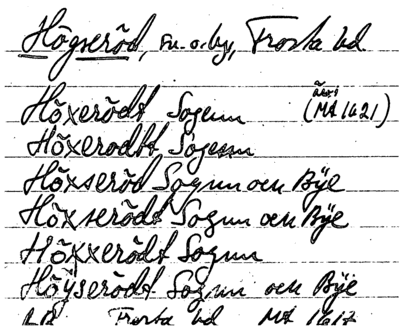 Högseröd, sn. o. by, Frosta hd
Höxerödt Sogenn (MA 1621)
Höxerodtt Sogenn
Höxseröd Sognn och Bÿe
Höxserödt Sognn och Bÿe
Höxxerödt Sognn
Höÿserödt Sognn och Bÿe
Frosta hd MA 1617